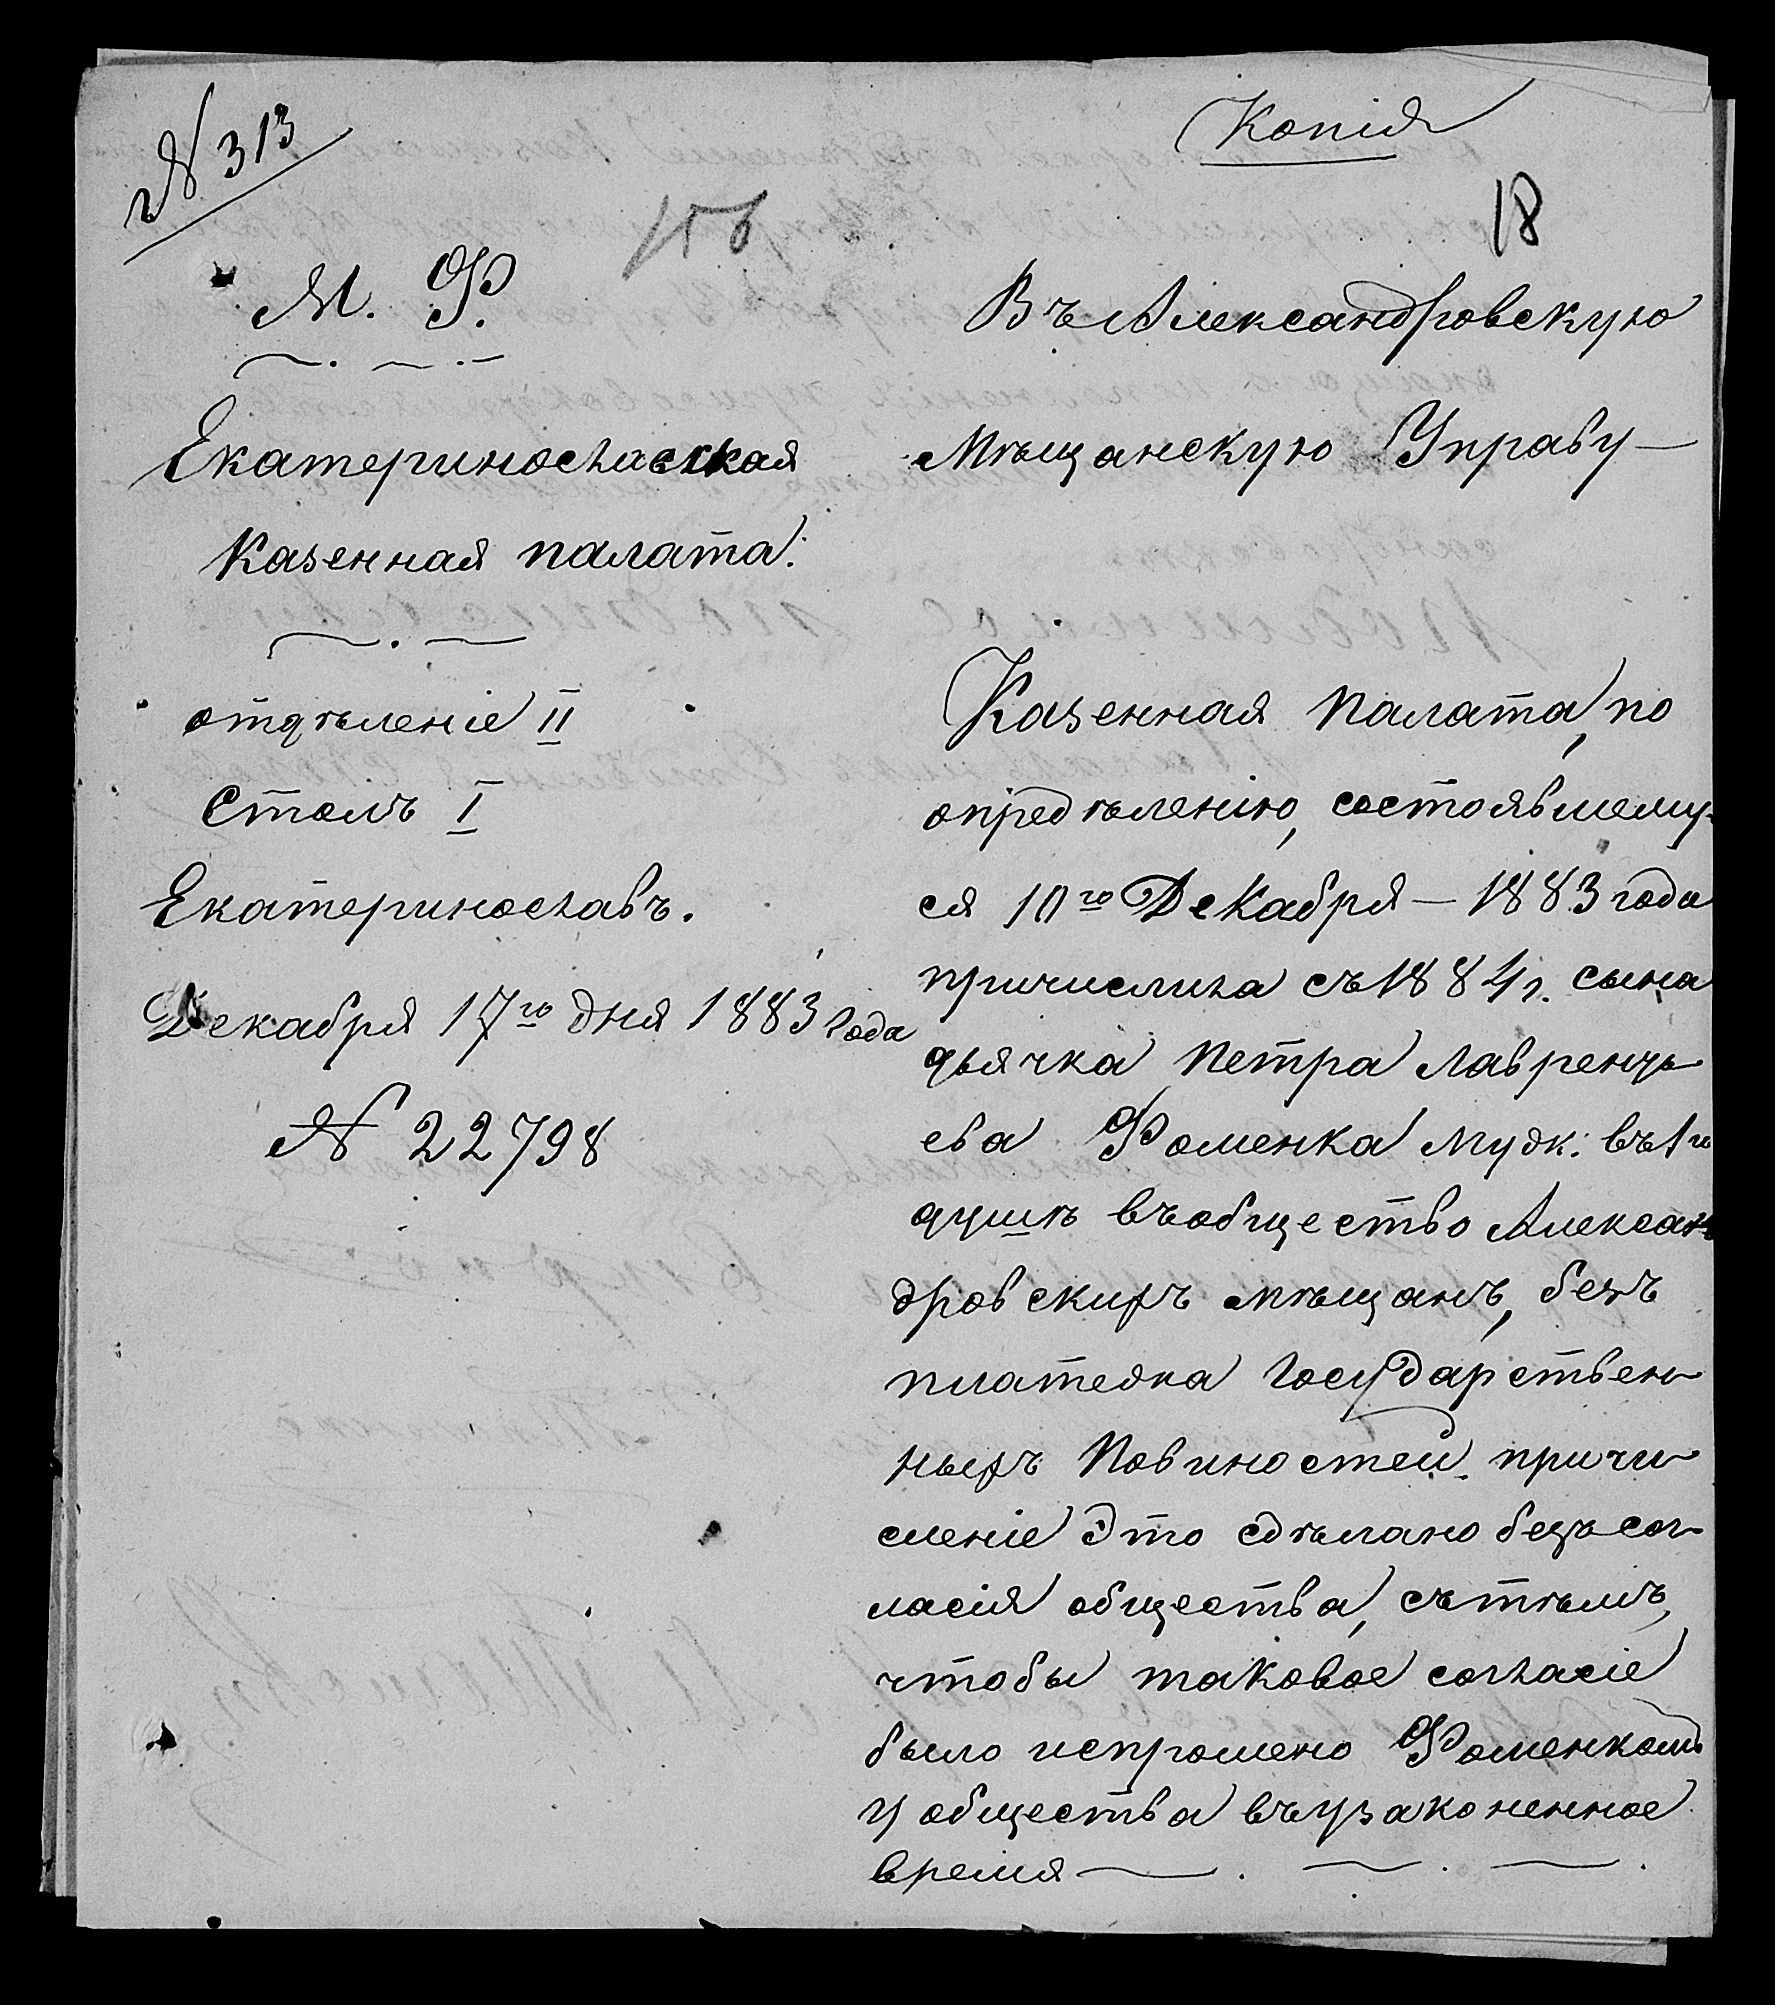 № 313
Копія
18
М. Ф.
Екатеринославская
Казенная палата.
отдѣленіе II
Столъ I
Екатеринославъ.
Декабря 17го дня 1883 года
№ 22798
Въ Александровскую
Мѣщанскую Управу
Казенная Палата, по
опредѣленію, состоявшему-
ся 10го Декабря 1883 года
причислила съ 1884 г. сына
дьячка Петра Лавренть
ева Фоменка муж: въ 1й
душѣ въ общество Алексан
дровскихъ мѣщанъ, безъ
платежа Государствен
ныхъ Повиностей. причи
сленіе Это сдѣлано безъ сог
ласія общества, съ тѣмъ,
чтобы таковое согласіе
было испрошено Фоменкомъ
у общества въ узаконенное
время